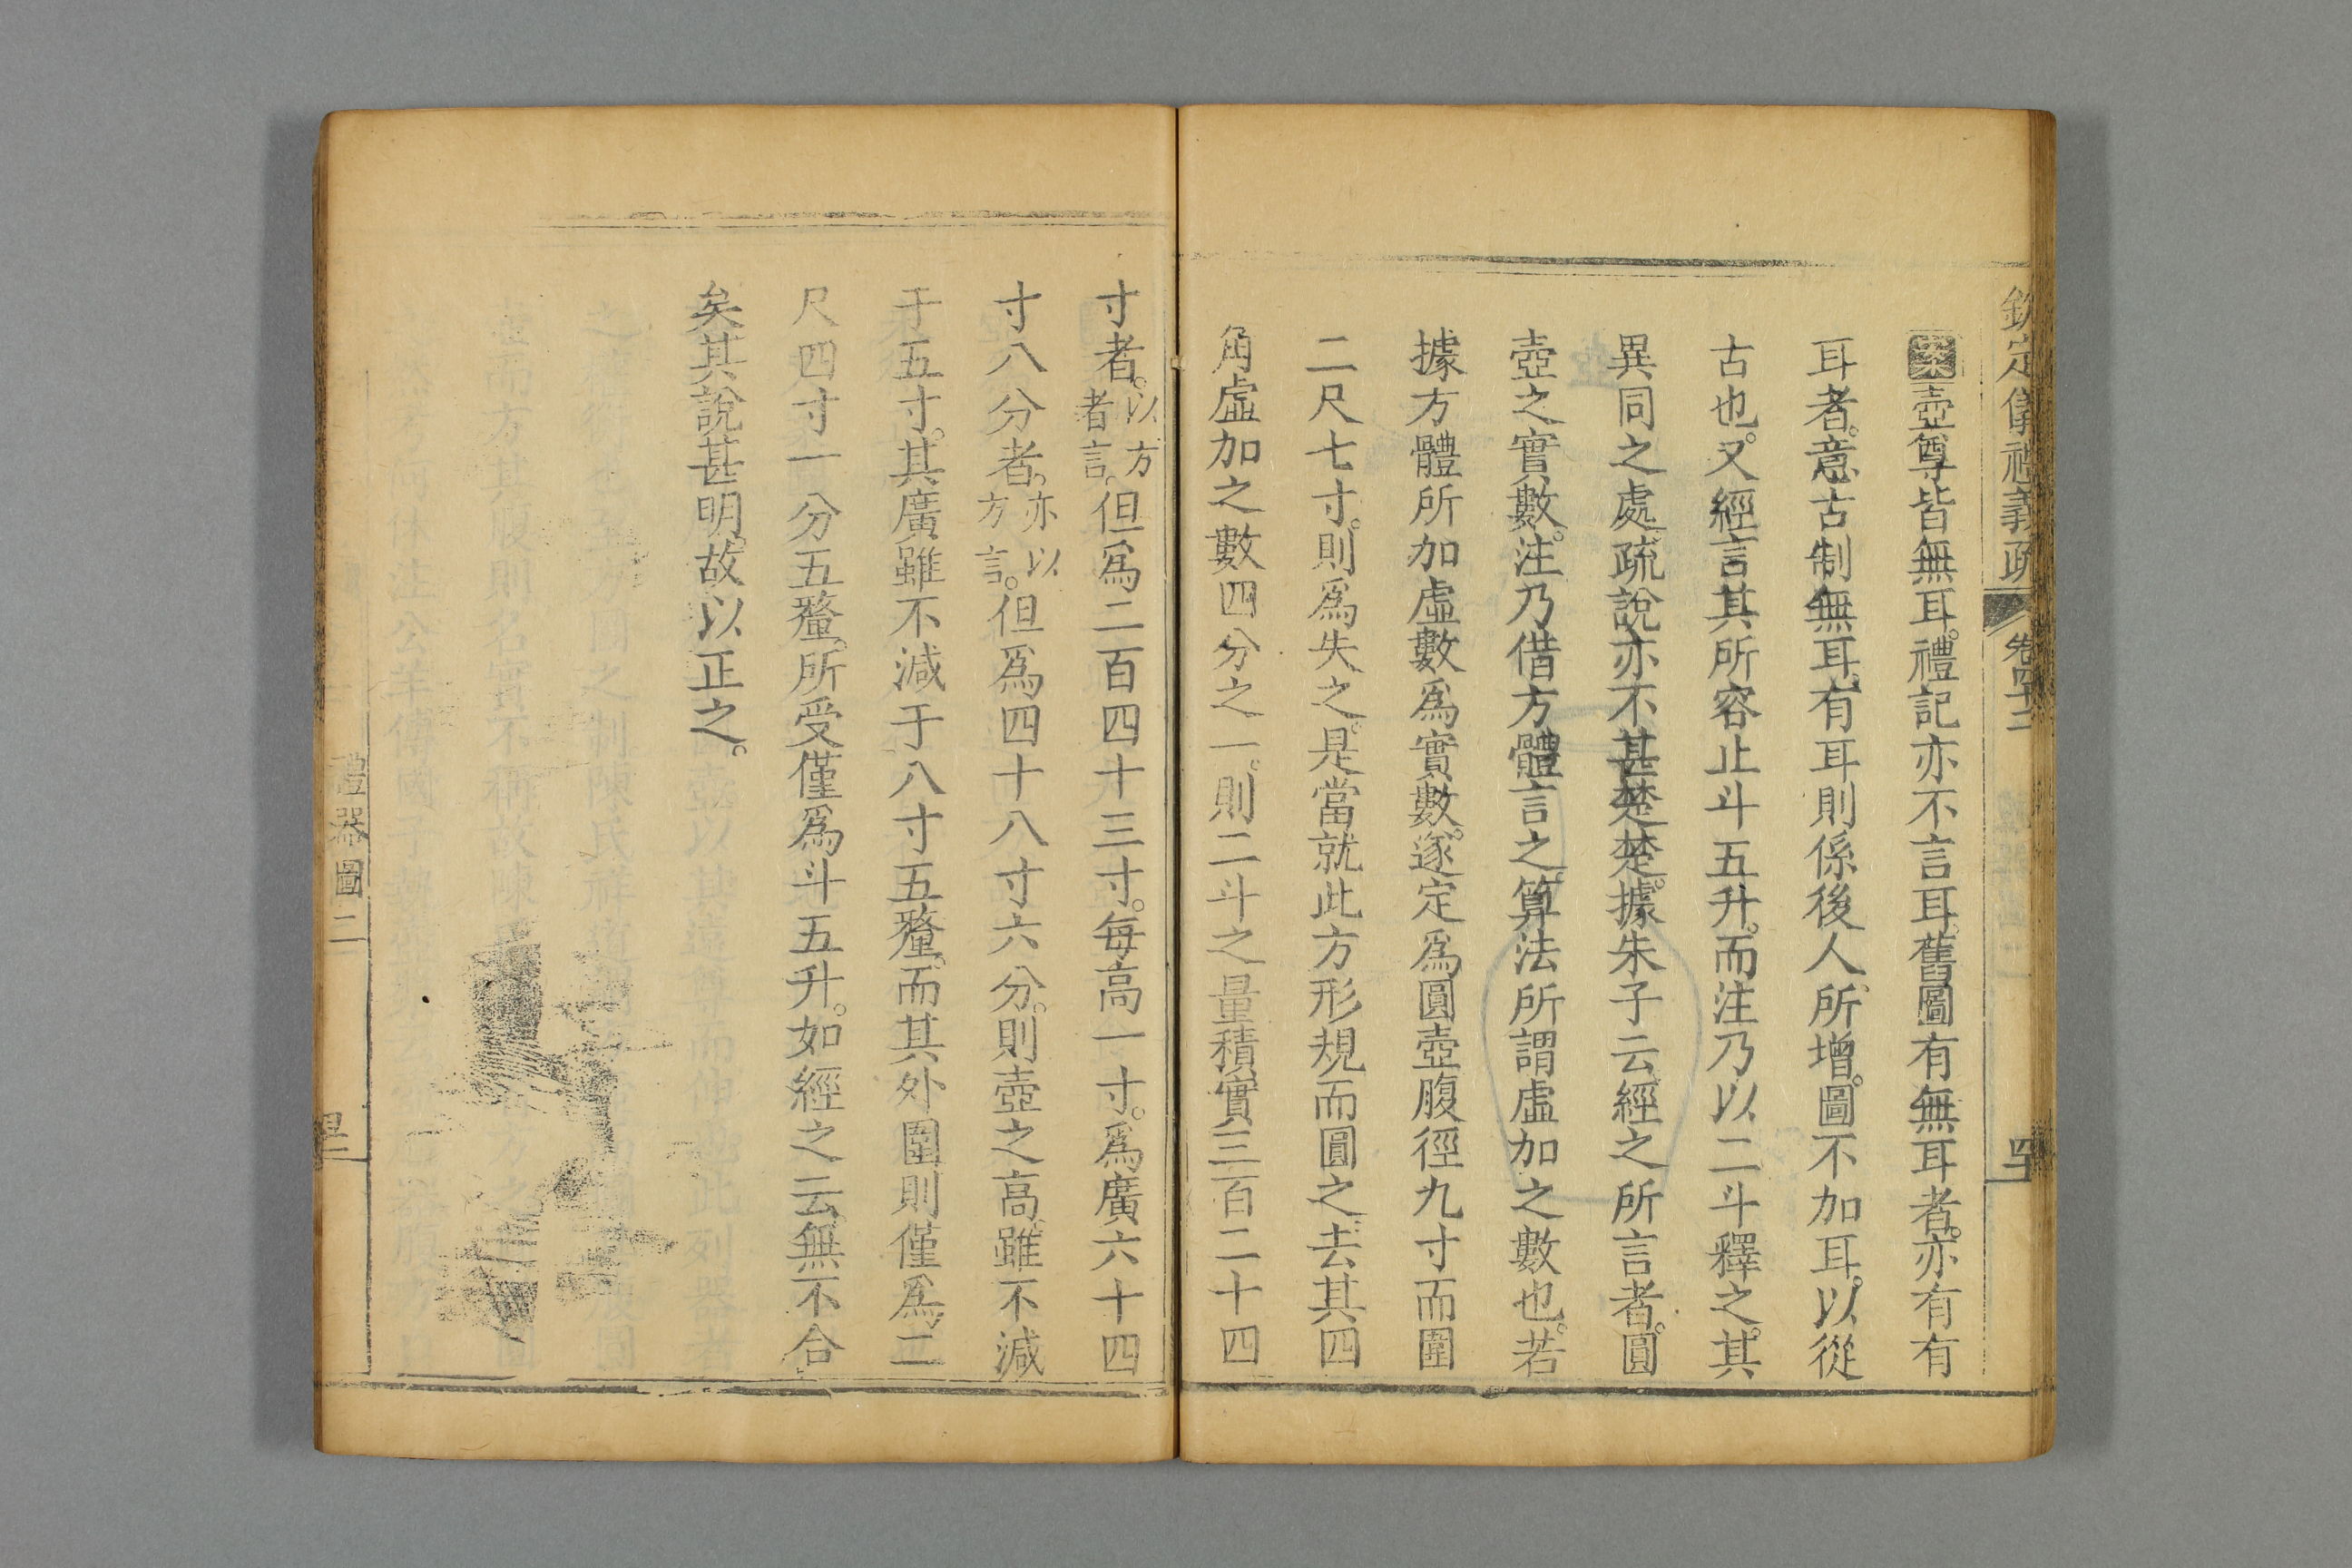 欽定儀禮義疏 卷四十二
案壺尊皆無耳。禮記亦不言耳。舊圖有無耳者。亦有有
耳者。意古制無耳。有耳則係後人所增。圖不加耳。以從
古也。又經言其所容止斗五升。而注乃以二斗釋之。其
異同之處。疏說亦不甚楚楚。據朱子云經之所言者。圓
壺之實數。注乃借方體言之。算法所謂虛加之數也。若
據方體所加虛數為實數。遂定為圓壺腹徑九寸而圍
二尺七寸。則為失之。是當就此方形規而圓之。去其四
角虛加之數四分之一。則二斗之量積實三百二十四
寸者。以方者言。但為二百四十三寸。每高一寸。為廣六十四
寸八分者。亦以方言。但為四十八寸六分。則壺之高雖不減
于五寸。其廣雖不減于八寸五釐。而其外圍則僅為二
尺四寸一分五釐。所受僅為斗五升。如經之云。無不合
矣。其說甚明。故以正之。
禮器圖二